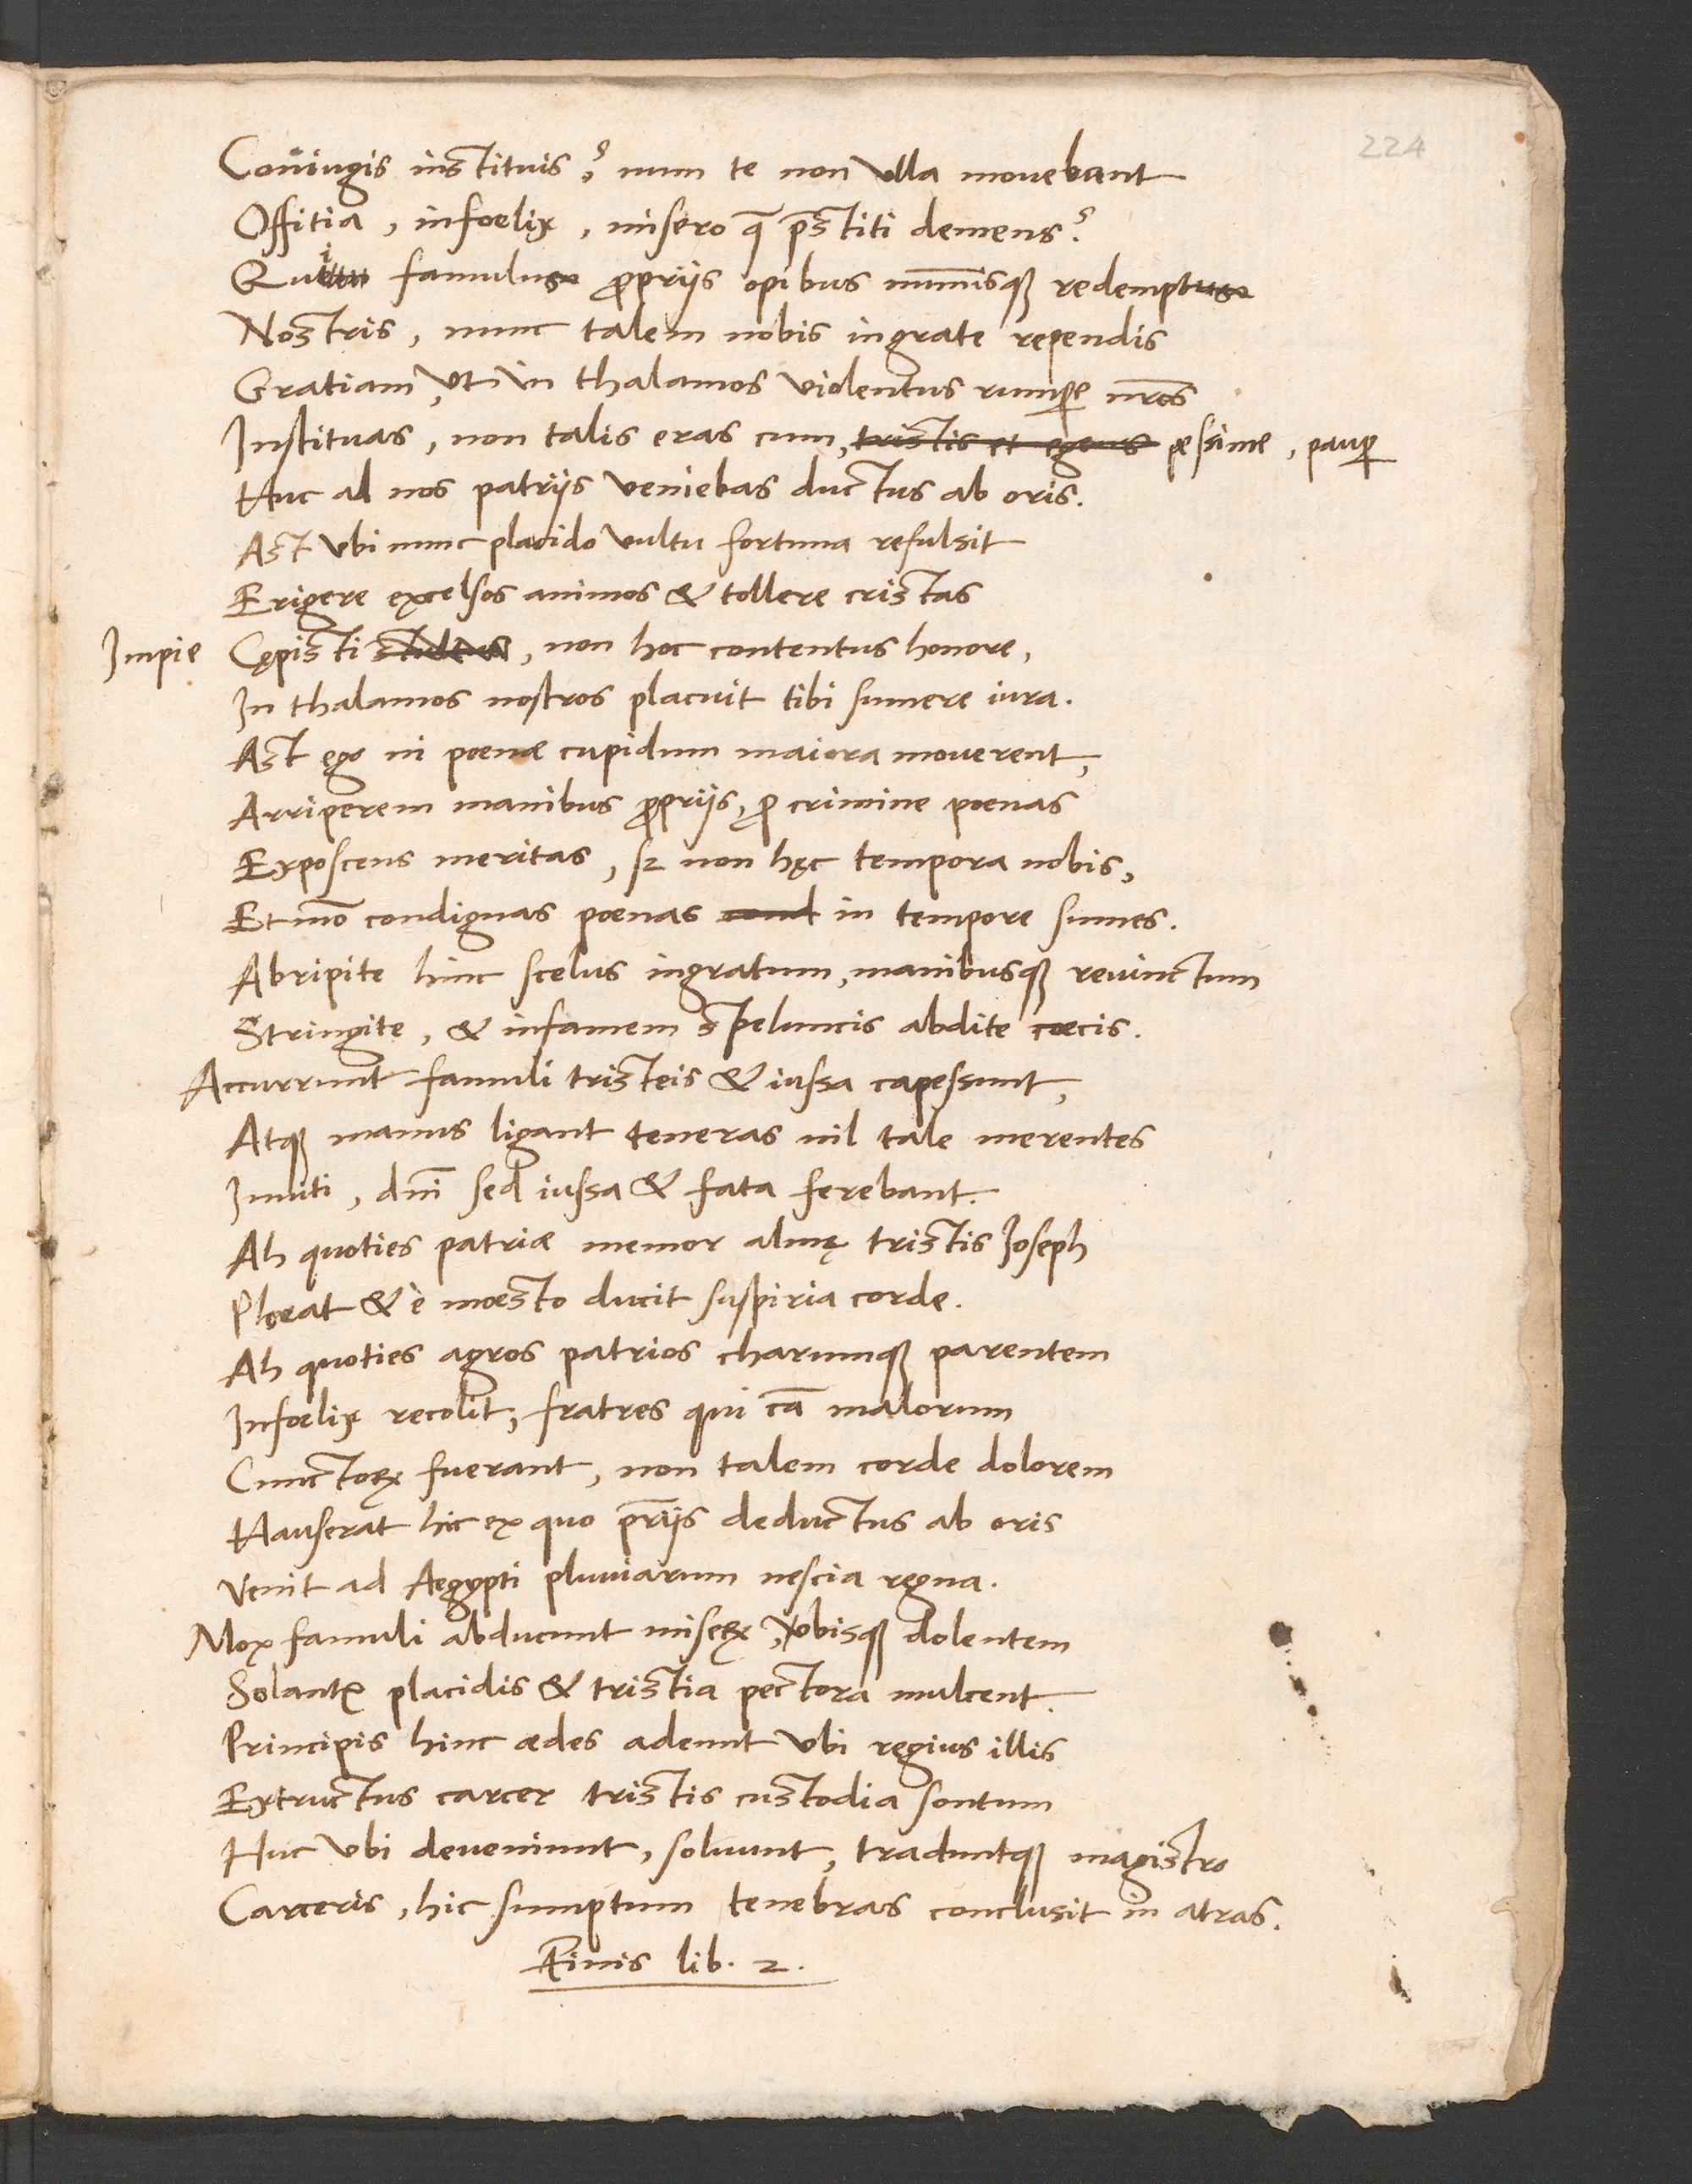 224
Coniugis instituis? num te non ulla mouebant
Offitia, infoelix, misero q̃ p̃stiti demens?
Qui famulus propriis opibus nummisq; redemptus
Nostris, nunc talem nobis ingrate rependis
Gratiam, ut in thalamos violentus rumpere nr̃os
Instituas, non talis eras cum, tristis et egens pessime, pauper
Huc ad nos patriis veniebas ductus ab oris.
Ast ubi nunc placido vultu fortuna refulsit
Erigere excelsos animos & tollere cristas
Impie Cępisti, non hoc contentus honore,
In thalamos nostros placuit tibi sumere iura.
Ast ego ni poenæ cupidum maiora mouerent,
Arriperem manibus propriis, pro crimine poenas
Exposcens meritas, sz non hęc tempora nobis,
Et mõ condignas poenas cond in tempore sumes.
Abripite hinc scelus ingratum, manibusq; reuinctum
Stringite, & infamem speluncis abdite cæcis.
Accurrunt famuli tristeis & iussa capessunt,
Atq; manus ligant teneras nil tale merentes
Inuiti, dñi sed iussa & fata ferebant.
Ah quoties patriæ memor almę tristis Ioseph
Plorat & è moesto ducit suspiria corde.
Ah quoties agros patrios charumq; parentem
Infoelix recolit, fratres qui cã malorum
Cunctorꝝ fuerant, non talem corde dolorem
Hauserat hic ex quo pr̃iis deductus ab oris
Venit ad Aegypti pluuiarum nescia regna.
Mox famuli abducunt miserꝝ, verbisq; dolentem
Solantr placidis & tristia pectora mulcent.
Principis hinc ædes adeunt ubi regius illis
Extructus carcer tristis custodia sontum
Huc ubi deueniunt, soluunt, traduntq; magistro
Carceris, hic sumptum tenebras conclusit in atras.
Finis lib. 2.